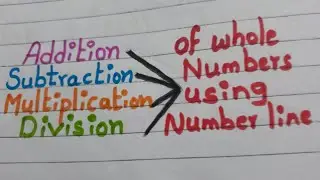 Addition
Subtraction
Multiplication
Division
of whole
Numbers
using
Number line